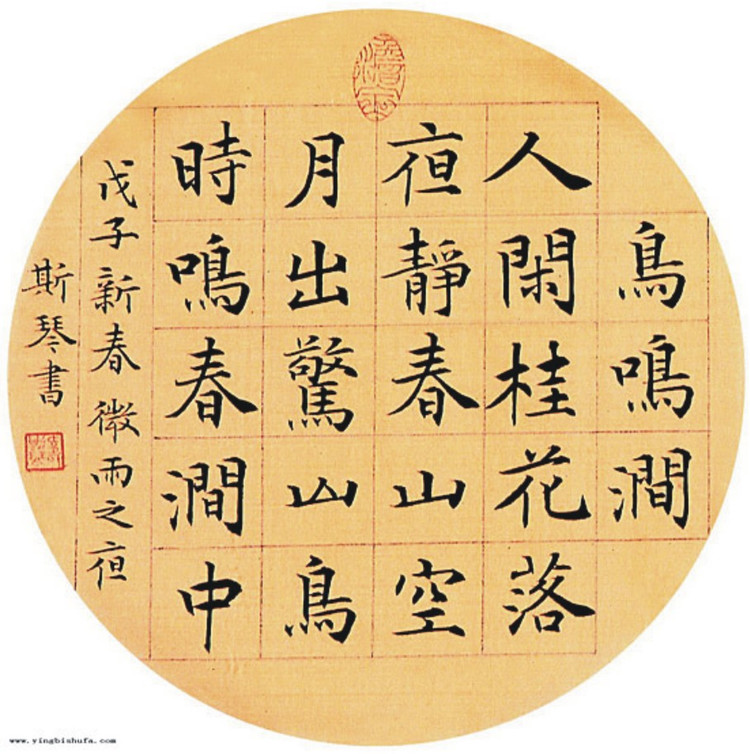 鳥鳴澗
人閑桂花落
夜靜春山空
月出驚山鳥
時鳴春澗中
戊子新春微雨之夜
斯琴書
www.yingbishufa.com